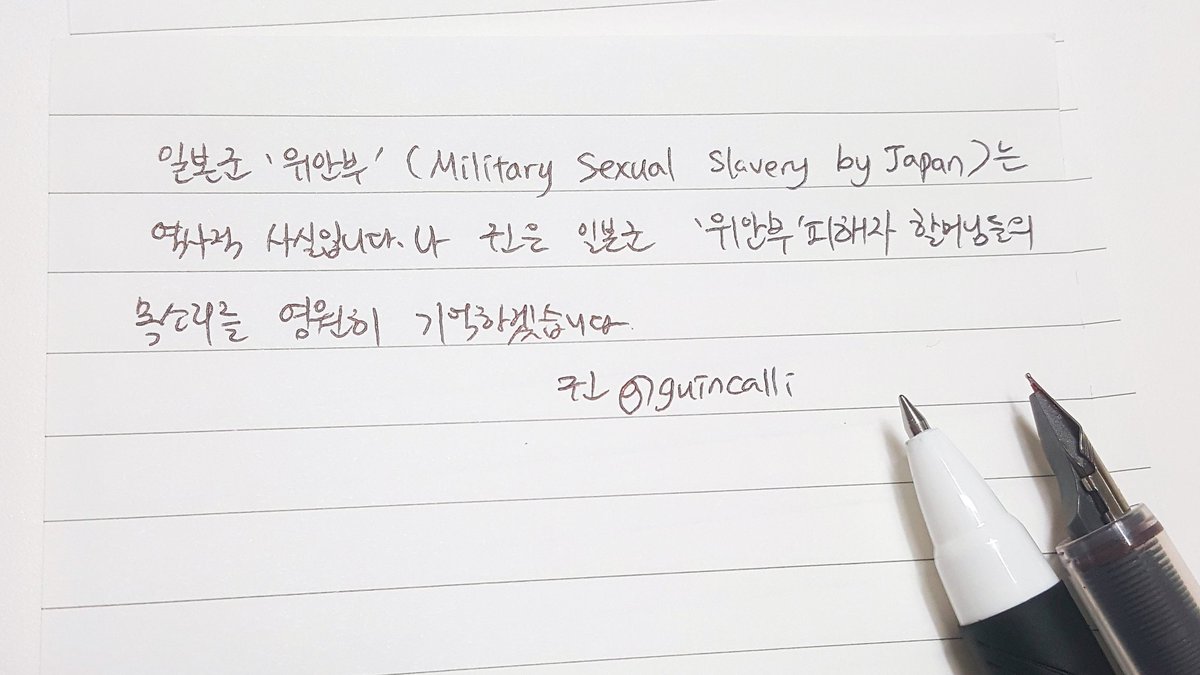 일본군 '위안부' (Military Sexual Slavery by Japan)는
역사적 사실입니다. 나 귄은 일본군 '위안부' 피해자 할머님들의
목소리를 영원히 기억하겠습니다.
귄 @guincalli